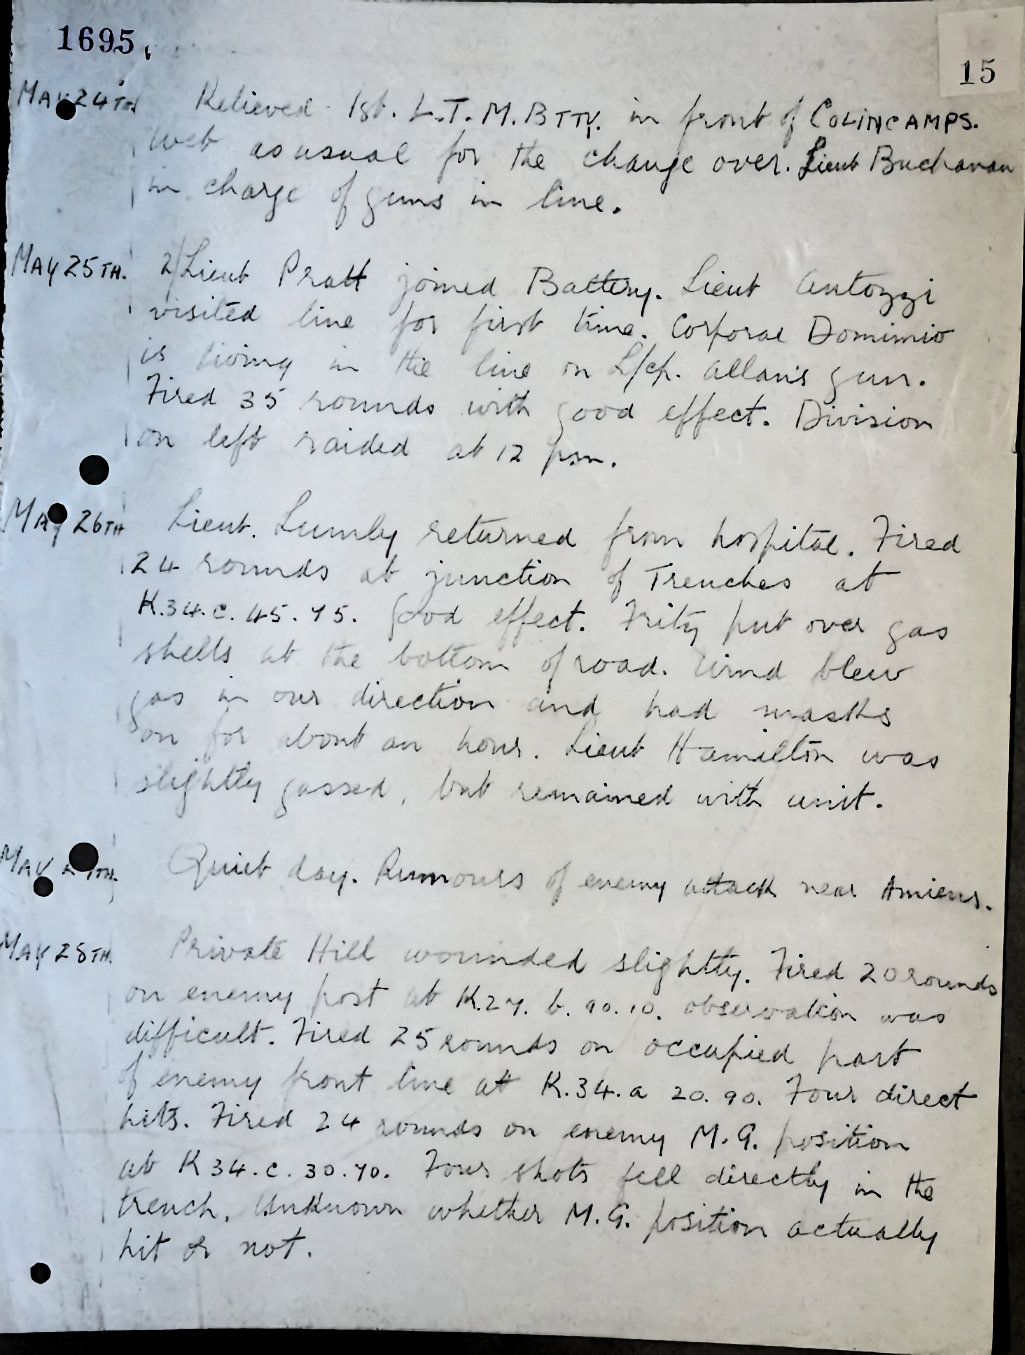 1695.
15
MAY 24TH Relieved 1st. L.T.M. BTTY. in front of COLINCAMPS.
Wet as usual for the change over. Lieut Buchanan
in charge of guns in line.
MAY 25TH. 2/Lieut Pratt joined Battery. Lieut Antozzi
visited line for first time. Corporal Dominio
is living in the line on L/cp. Allan's gun.
Fired 35 rounds with good effect. Division
on left raided at 12 p.m.
MAY 26TH Lieut. Lumby returned from hospital. Fired
24 rounds at junction of Trenches at
K.34.c.45.75. Good effect. Fritz put over gas
shells at the bottom of road. Wind blew
gas in our direction and had masks
on for about an hour. Lieut Hamilton was
slightly gassed, but remained with unit.
MAY 27TH. Quiet day. Rumours of enemy attack near Amiens.
MAY 28TH. Private Hill wounded slightly. Fired 20 rounds
on enemy post at K.27.b.90.10. observation was
difficult. Fired 25 rounds on occupied part
of enemy front line at K.34.a 20.90. Four direct
hits. Fired 24 rounds on enemy M.G. position
at K34.c.30.70. Four shots fell directly in the
trench. Unknown whether M.G. position actually
hit or not.